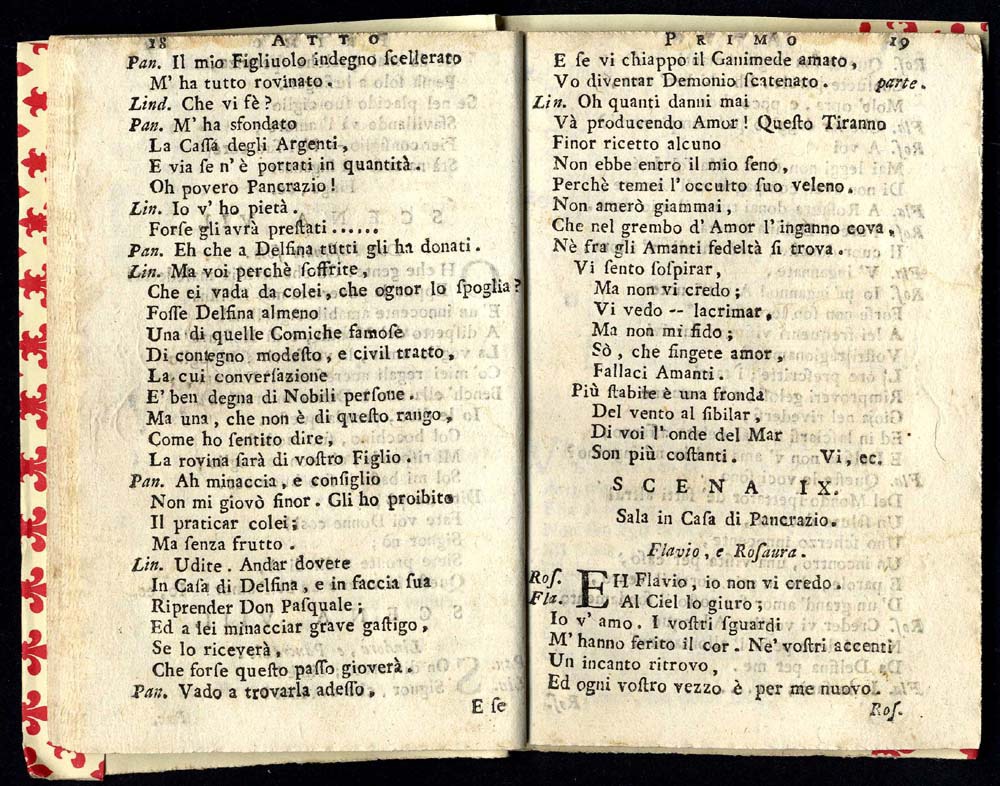 18 ATTO
Pan. Il mio Figliuolo indegno ſcellerato
M' ha tutto rovinato.
Lind. Che vi fè?
Pan. M' ha sfondato
La Caſſa degli Argenti,
E via ſe n' è portati in quantità.
Oh povero Pancrazio!
Lin. Io v' ho pietà.
Forſe gli avrà preſtati ......
Pan. Eh che a Delfina tutti gli ha donati.
Lin. Ma voi perchè ſoffrite,
Che ei vada da colei, che ognor lo ſpoglia?
Foſſe Delfina almeno
Una di quelle Comiche famoſe
Di contegno modeſto, e civil tratto,
La cui converſazione
E' ben degna di Nobili perſone.
Ma una, che non è di queſto rango,
Come ho ſentito dire,
La rovina ſarà di voſtro Figlio.
Pan. Ah minaccia, e conſiglio
Non mi giovò finor. Gli ho proibito
Il praticar colei;
Ma ſenza frutto.
Lin. Udite. Andar dovete
In Caſa di Delfina, e in faccia ſua
Riprender Don Paſquale;
Ed a lei minacciar grave gaſtigo,
Se lo riceverà,
Che forſe queſto paſſo gioverà.
Pan. Vado a trovarla adeſſo,
E ſe
PRIMO 19
E ſe vi chiappo il Ganimede amato,
Vo diventar Demonio ſcatenato. parte.
Lin. Oh quanti danni mai
Và producendo Amor! Queſto Tiranno
Finor ricetto alcuno
Non ebbe entro il mio ſeno,
Perchè temei l' occulto ſuo veleno.
Non amerò giammai,
Che nel grembo d' Amor l' inganno cova,
Nè fra gli Amanti fedeltà ſi trova.
Vi ſento ſoſpirar,
Ma non vi credo;
Vi vedo -- lacrimar,
Ma non mi fido;
Sò, che fingete amor,
Fallaci Amanti.
Più ſtabile è una fronda
Del vento al ſibilar,
Di voi l' onde del Mar
Son più coſtanti. Vi, ec.
SCENA IX.
Sala in Caſa di Pancrazio.
Flavio, e Roſaura.
Roſ. EH Flavio, io non vi credo.
Fla. Al Ciel lo giuro;
Io v' amo. I voſtri ſguardi
M' hanno ferito il cor. Ne' voſtri accenti
Un incanto ritrovo,
Ed ogni voſtro vezzo è per me nuovo.
Roſ.